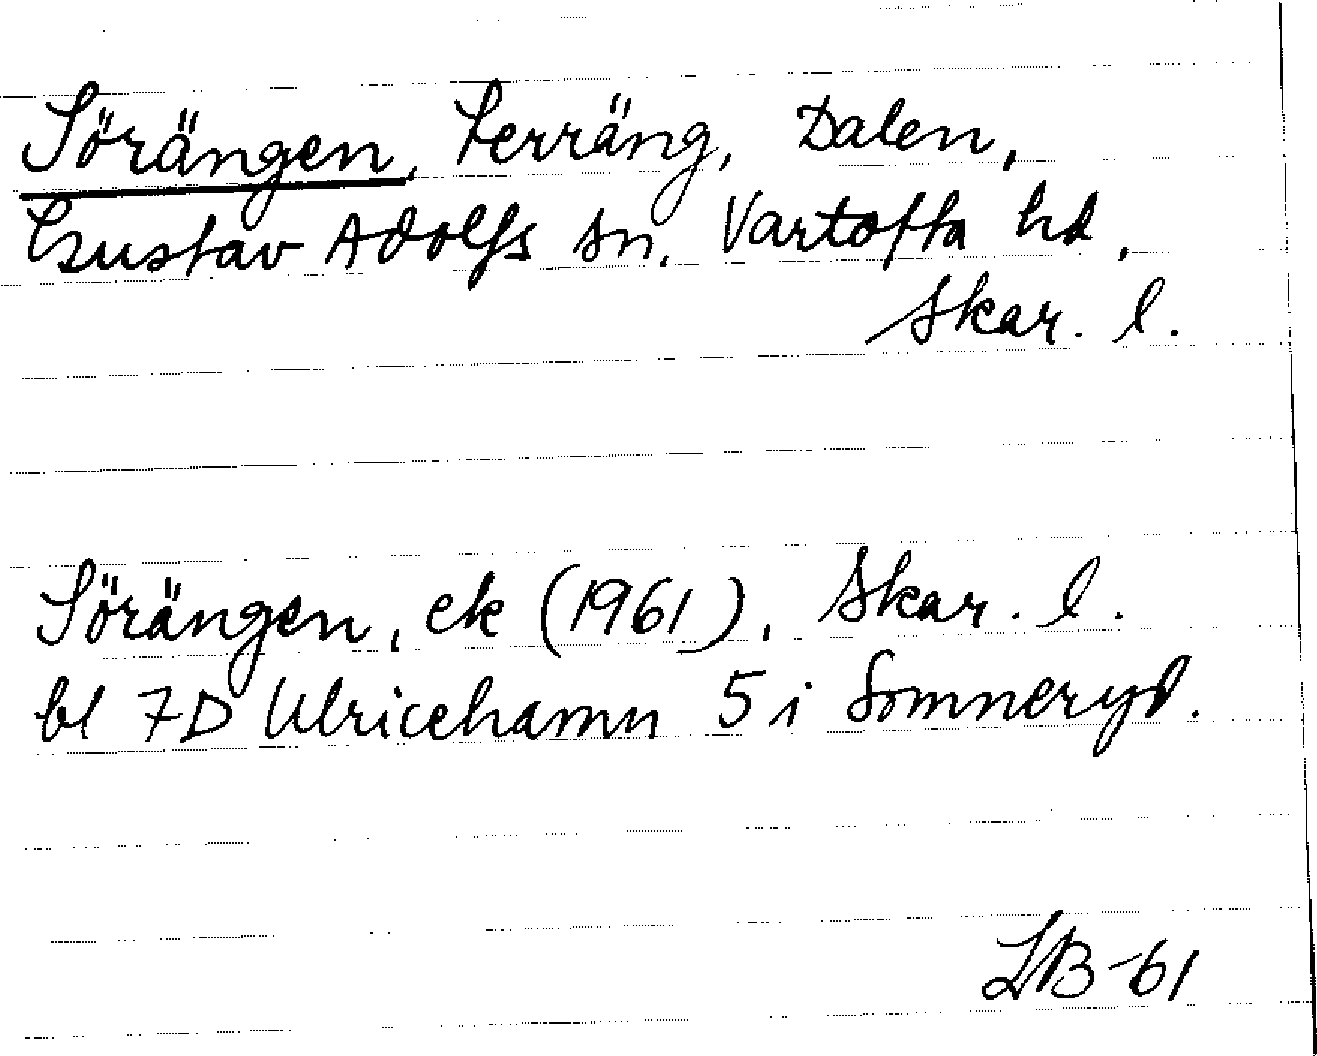 Sörängen, Terräng, Dalen,
Gustav Adolfs sn. Vartofta hd,
Skar. l.
Sörängen, ek (1961), Skar. l.
bl 7D Ulricehamn 5 i Somneryd.
LB-61